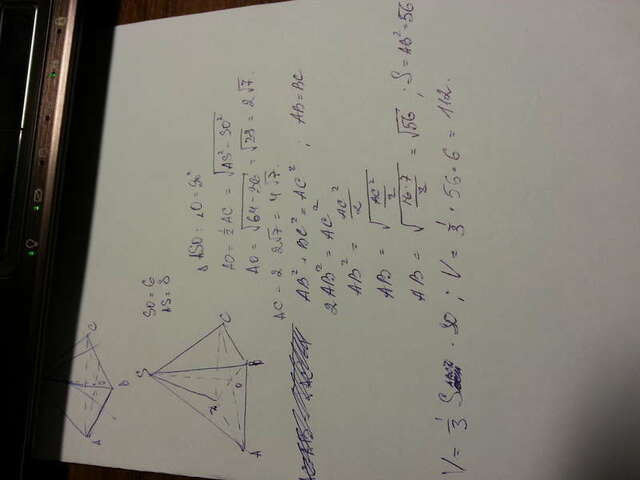 SO = 6
AS = 8
△ ASO: ∠O = 90°
AO = ½ AC = √(AS² - SO²)
AO = √(64 - 36) = √28 = 2√7.
AC = 2 · 2√7 = 4√7.
AB² + BC² = AC² ; AB = BC
2AB² = AC²
AB² = AC²/2
AB = √(AC²/2)
AB = √(16·7/2) = √56 ; S = AB² = 56
V = ⅓ S · SO ; V = ⅓ · 56 · 6 = 112.
A
B
C
S
C
B
A
O